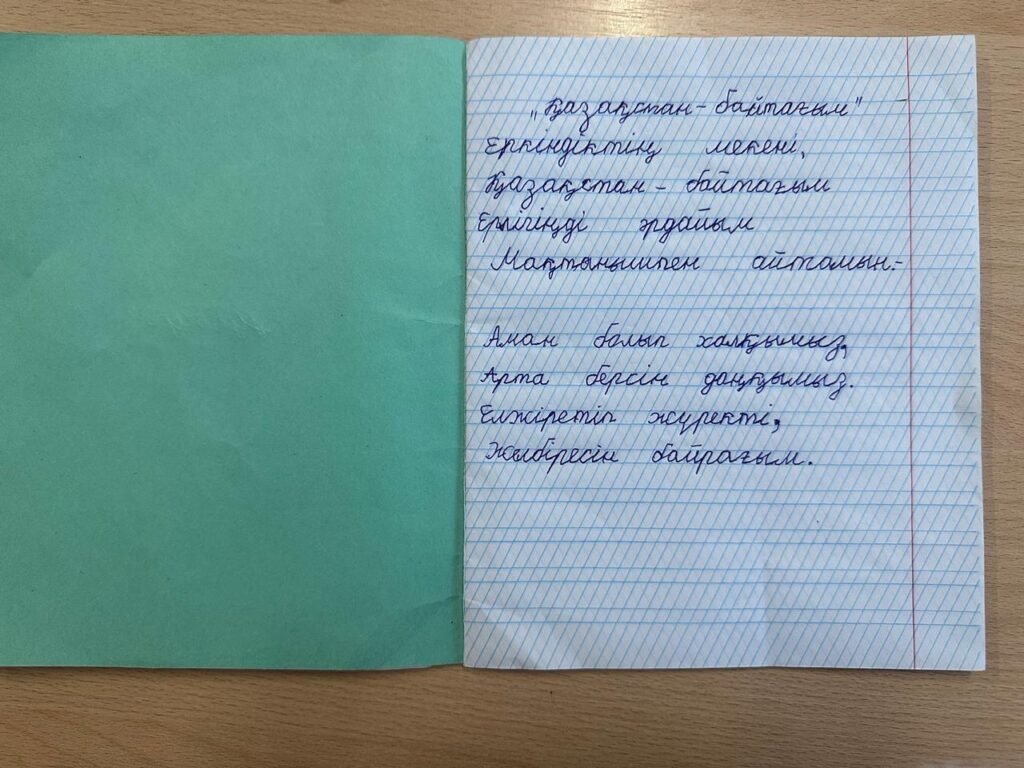 „Қазақстан - байтағым"
Еркіндіктің мекені,
Қазақстан - байтағым
Ерлігіңді әрдайым
Мақтанышпен айтамын.-
Аман болып халқымыз,
Арта берсін даңқымыз.
Елжіретіп жүректі,
Желбіресін байрағым.